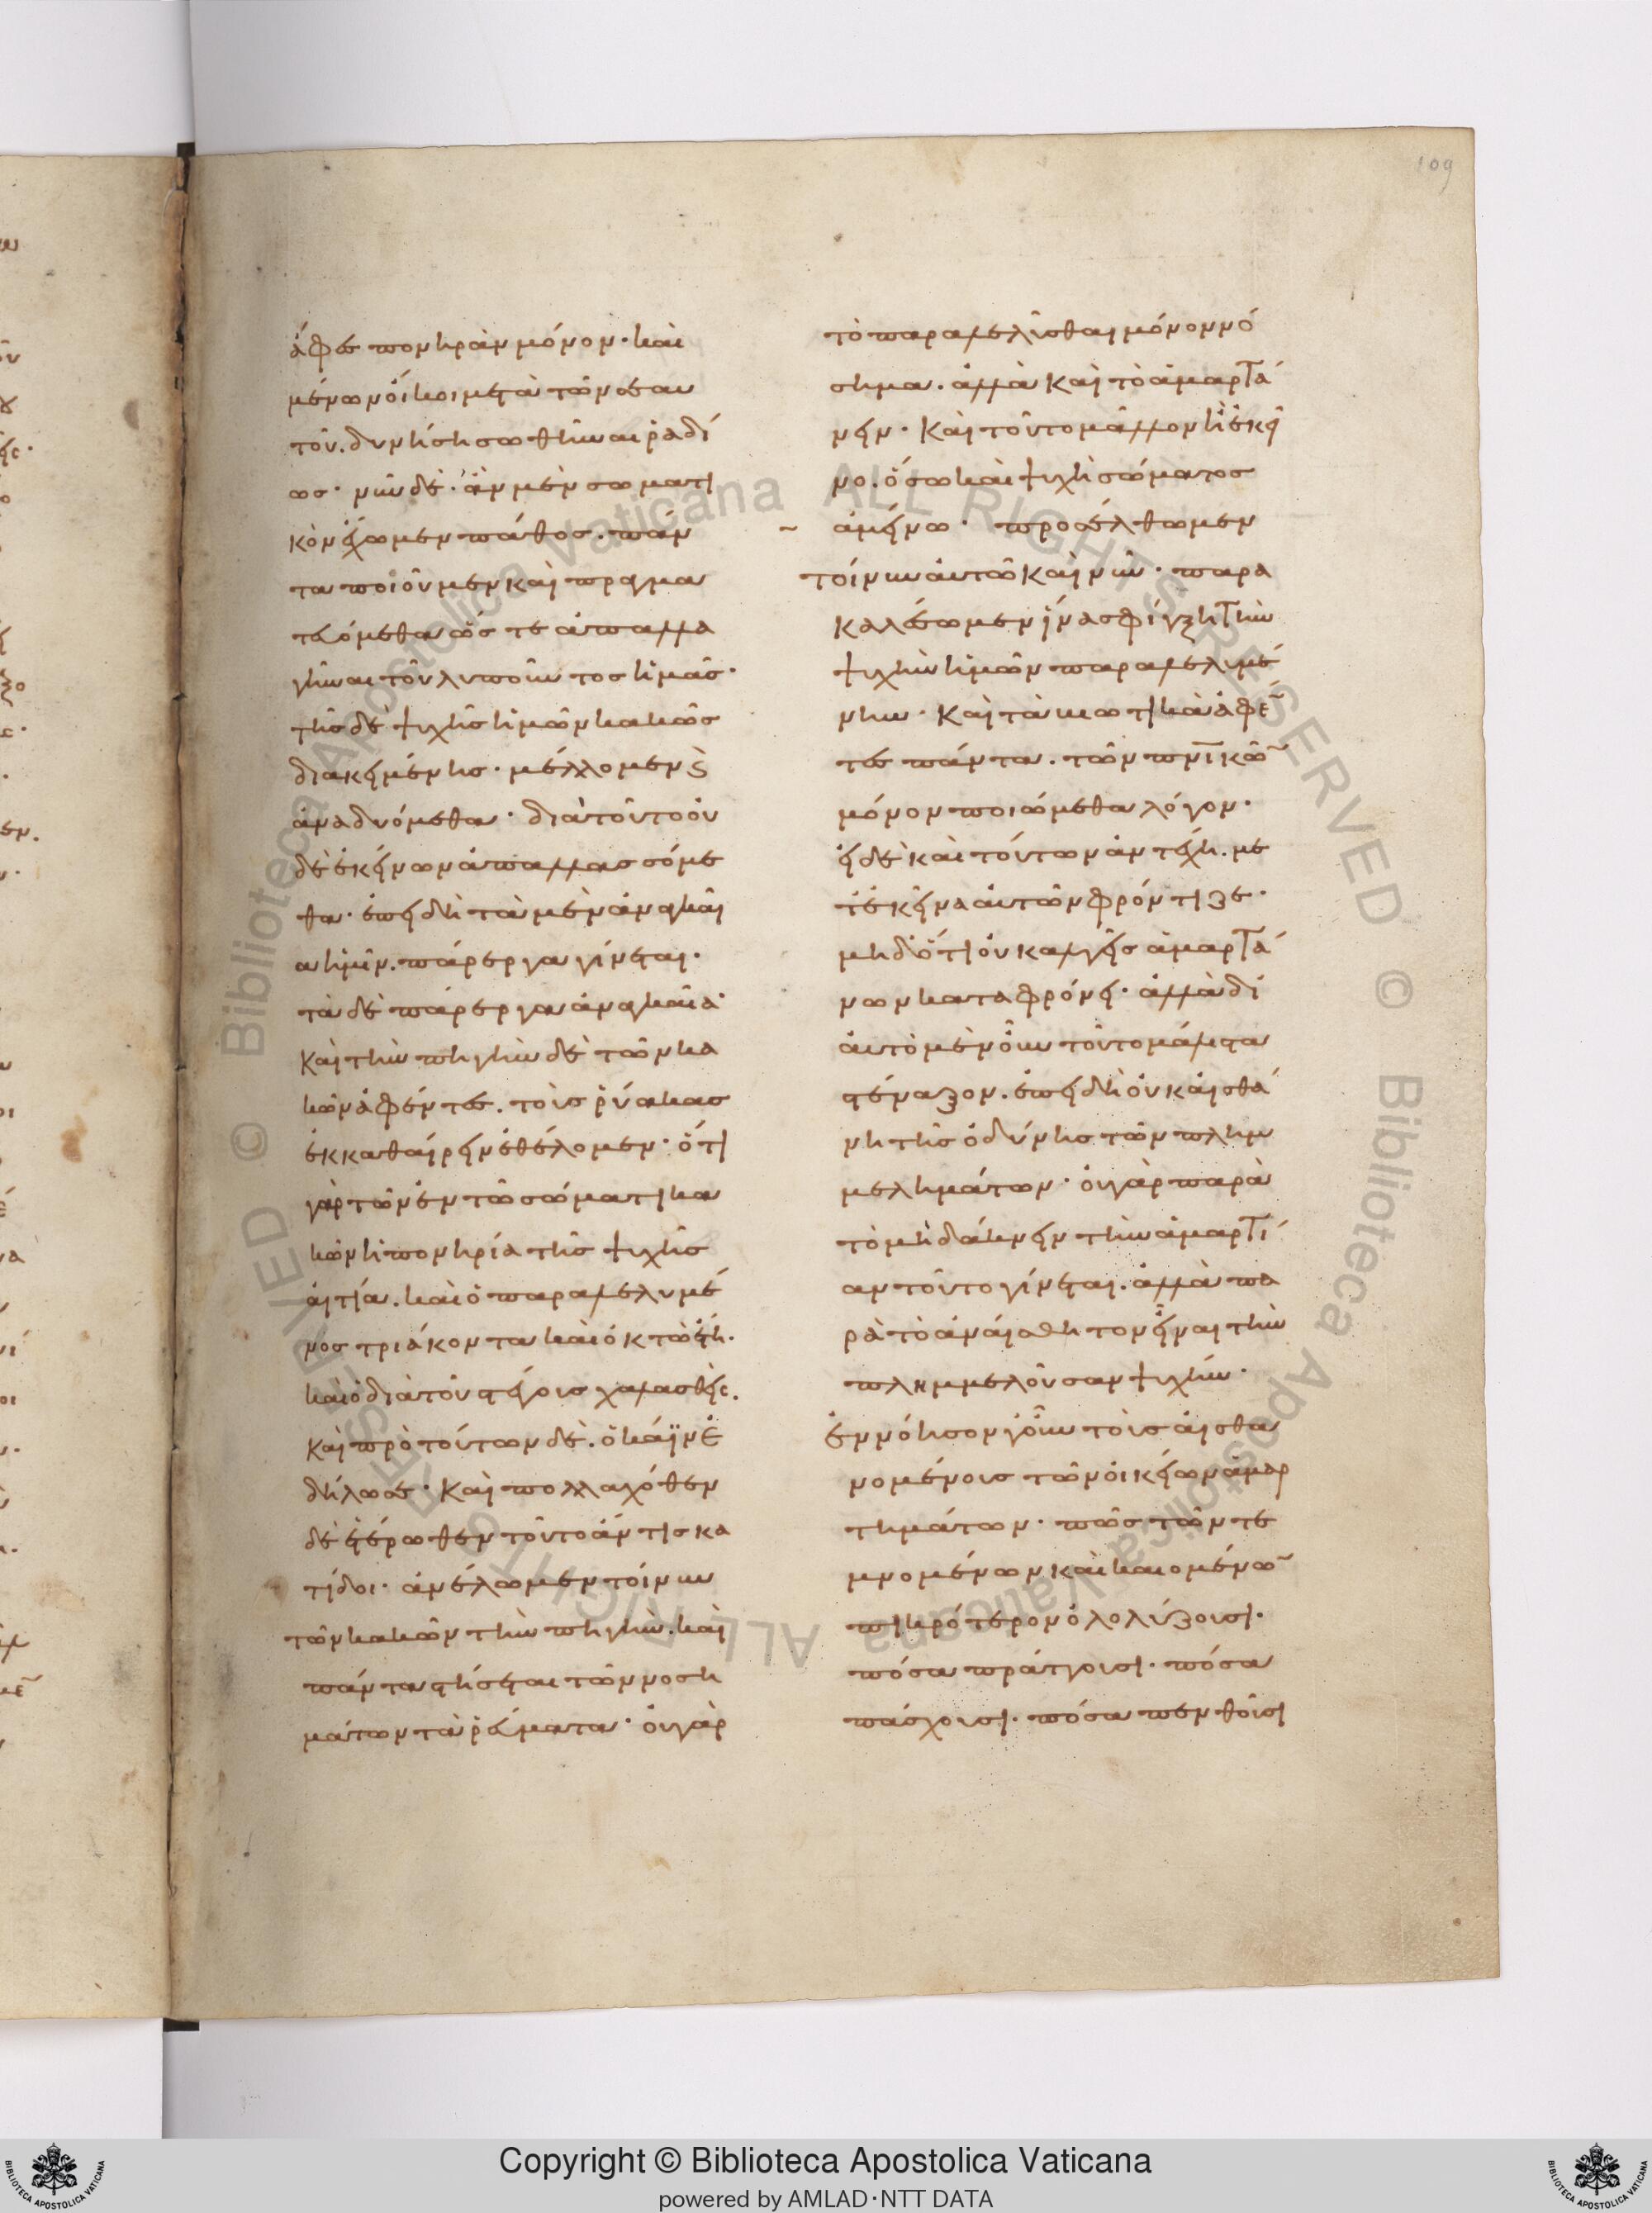 109
ἄφες πονηρὰν μόνον· καὶ
μένων οἴκοι μετὰ τῶν σεαυ
τοῦ. δυνήσῃ σωθῆναι ῥαδί
ως· νῦν δὲ· ἂν μὲν σωματι
κὸν ἔχωμεν πάθος. πάν
τα ποιοῦμεν καὶ πραγμα
τευόμεθα ὥστε ἀπαλλα
γῆναι τοῦ λυποῦντος ἡμᾶς·
τῆς δὲ ψυχῆς ἡμῶν κακῶς
διακειμένης· μέλλομεν ϗ
ἀναδυόμεθα· διὰ τοῦτο οὐ
δὲ ἐκείνων ἀπαλλασσόμε
θα· ἐπειδὴ τὰ μὲν ἀναγκαῖ
α ἡμῖν. πάρεργα γίνεται·
τὰ δὲ πάρεργα ἀναγκαῖα·
καὶ τὴν πηγὴν δὲ τῶν κα
κῶν ἀφέντες. τοὺς ῥύακας
ἐκκαθαίρειν ἐθέλομεν· ὅτι
γὰρ τῶν ἐν τῶ σώματι κα
κῶν ἡ πονηρία τῆς ψυχῆς
αἰτία. καὶ ὁ παραλελυμέ
νος τριάκοντα καὶ ὀκτὼ ἔτη.
καὶ ὁ διὰ τοῦ στέγους χαλασθείς.
καὶ πρὸ τούτων δὲ. ὁ κάϊν ἐ
δήλωσε· καὶ πολλαχόθεν
δὲ ἑτέρωθεν τοῦτο ἄν τις κα
τίδοι· ἀνέλωμεν τοίνυν
τῶν κακῶν τὴν πηγήν. καὶ
πάντα στήσεται τῶν νοση
μάτων τὰ ῥεύματα· οὐ γὰρ
τὸ παραλελῦσθαι μόνον νό
σημα. ἀλλὰ καὶ τὸ ἁμαρτά
νειν· καὶ τοῦτο μᾶλλον ἢ ἐκεῖ
νο. ὅσω καὶ ψυχὴ σώματος
ἀμείνω· προσέλθωμεν
τοίνυν αὐτῶ καὶ νῦν· παρα
καλέσωμεν ἵνα σφίγξη τὴν
ψυχὴν ἡμῶν παραλελυμέ
νην· καὶ τὰ βιωτικὰ ἀφέ
τες πάντα. τῶν πνικῶ
μόνον ποιώμεθα λόγον·
εἰ δὲ καὶ τούτων ἀντέχη. με
τ’ ἐκεῖνα αὐτῶν φρόντιζε·
μὴ διότι οὐκ ἀλγεῖς ἁμαρτά
νων καταφρόνει· ἀλλὰ δι’
αὐτὸ μὲν οὖν τοῦτο μάλιστα
στέναζον. ἐπειδὴ οὐκ αἰσθά
νη τῆς ὀδύνης τῶν πλημ
μελημάτων· οὐ γὰρ παρὰ
τὸ μὴ δάκνειν τὴν ἁμαρτί
αν τοῦτο γίνεται. ἀλλὰ πα
ρὰ τὸ ἀναίσθητον εἶναι τὴν
πλημμελοῦσαν ψυχήν·
ἐννόησον γοῦν τοὺς αἰσθα
νομένους τῶν οἰκείων ἁμαρ
τημάτων· πῶς τῶν τε
μνομένων καὶ καιομένω
πικρότερον ὀλολύζουσι·
πόσα πράττουσι· πόσα
πάσχουσι· πόσα πενθοῦσι
Copyright © Biblioteca Apostolica Vaticana
powered by AMLAD·NTT DATA